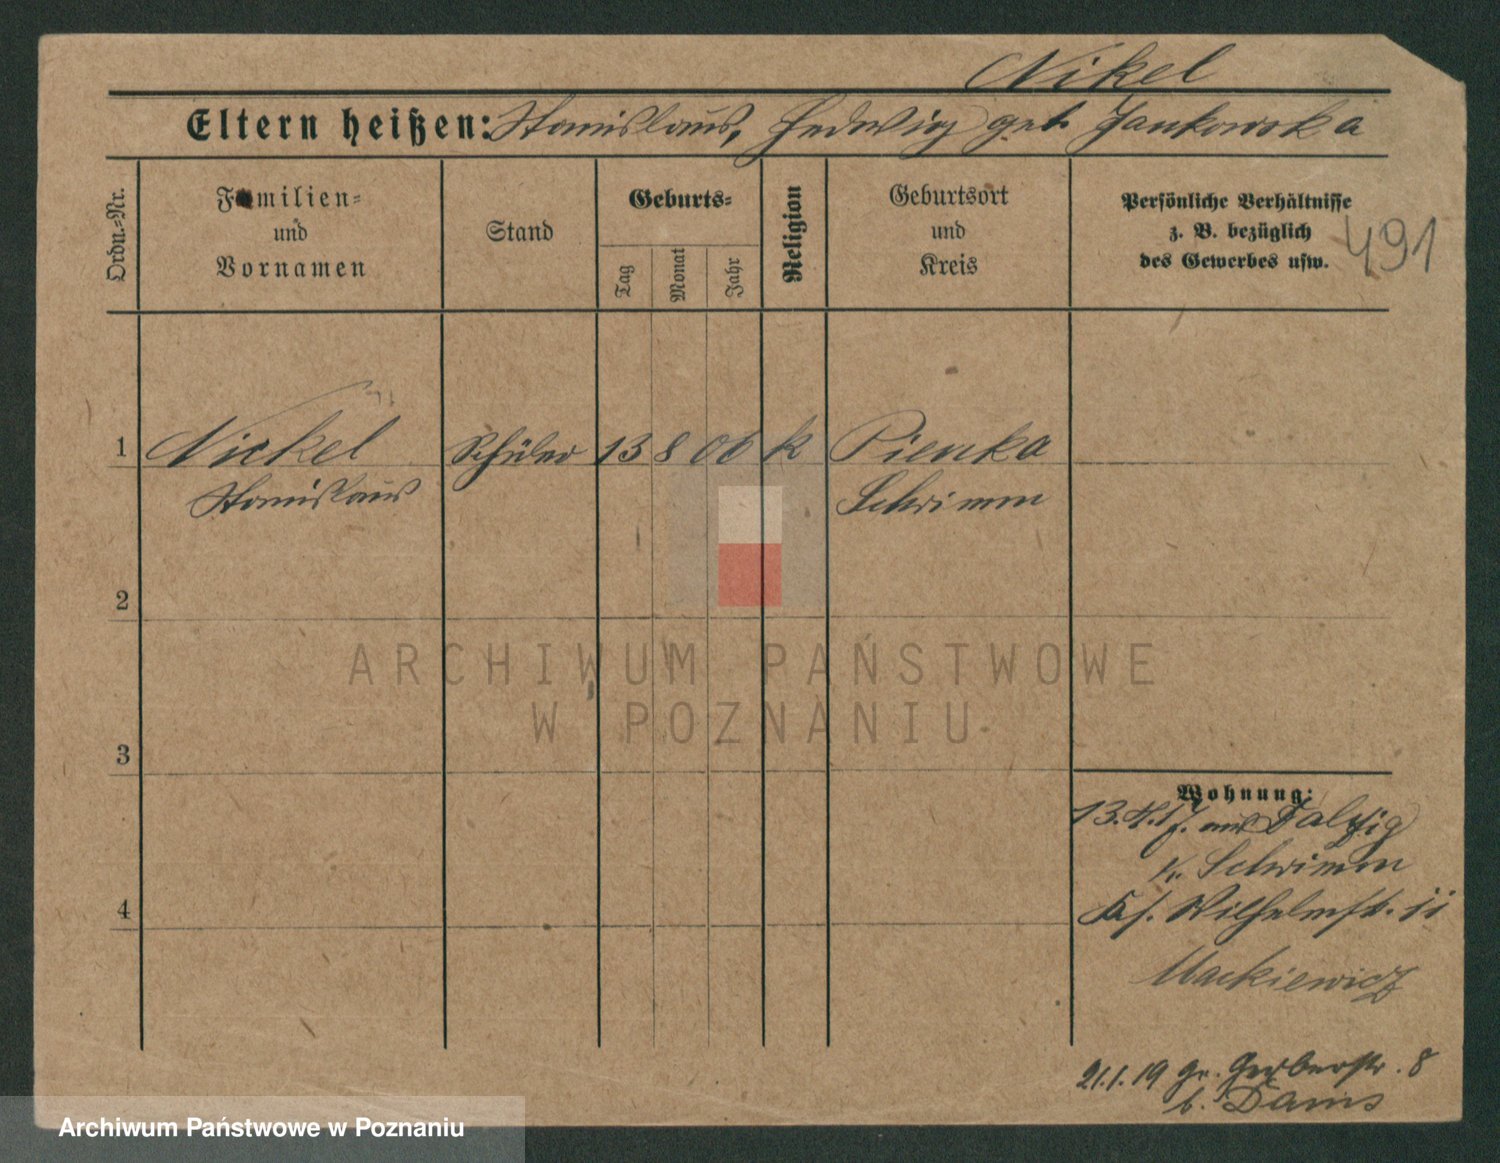 Nikel
Eltern heißen: Stanislaus, Hedwig geb. Jankowska
Ordn.=Nr.
Familien=
und
Vornamen
Stand
Geburts=
Tag
Monat
Jahr
Religion
Geburtsort
und
Kreis
Persönliche Verhältnisse
z. B. bezüglich
des Gewerbes usw.
491
1 Nickel Schüler 13 8 06 k Pienka
Stanislaus Schrimm
2
3
4
Wohnung:
13.4.17. aus
Kr. Schrimm
Wilhelmstr. 11
Mackiewicz
21.1.19 Gr. Gerberstr. 8
b. Dams
ARCHIWUM PAŃSTWOWE
W POZNANIU
Archiwum Państwowe w Poznaniu